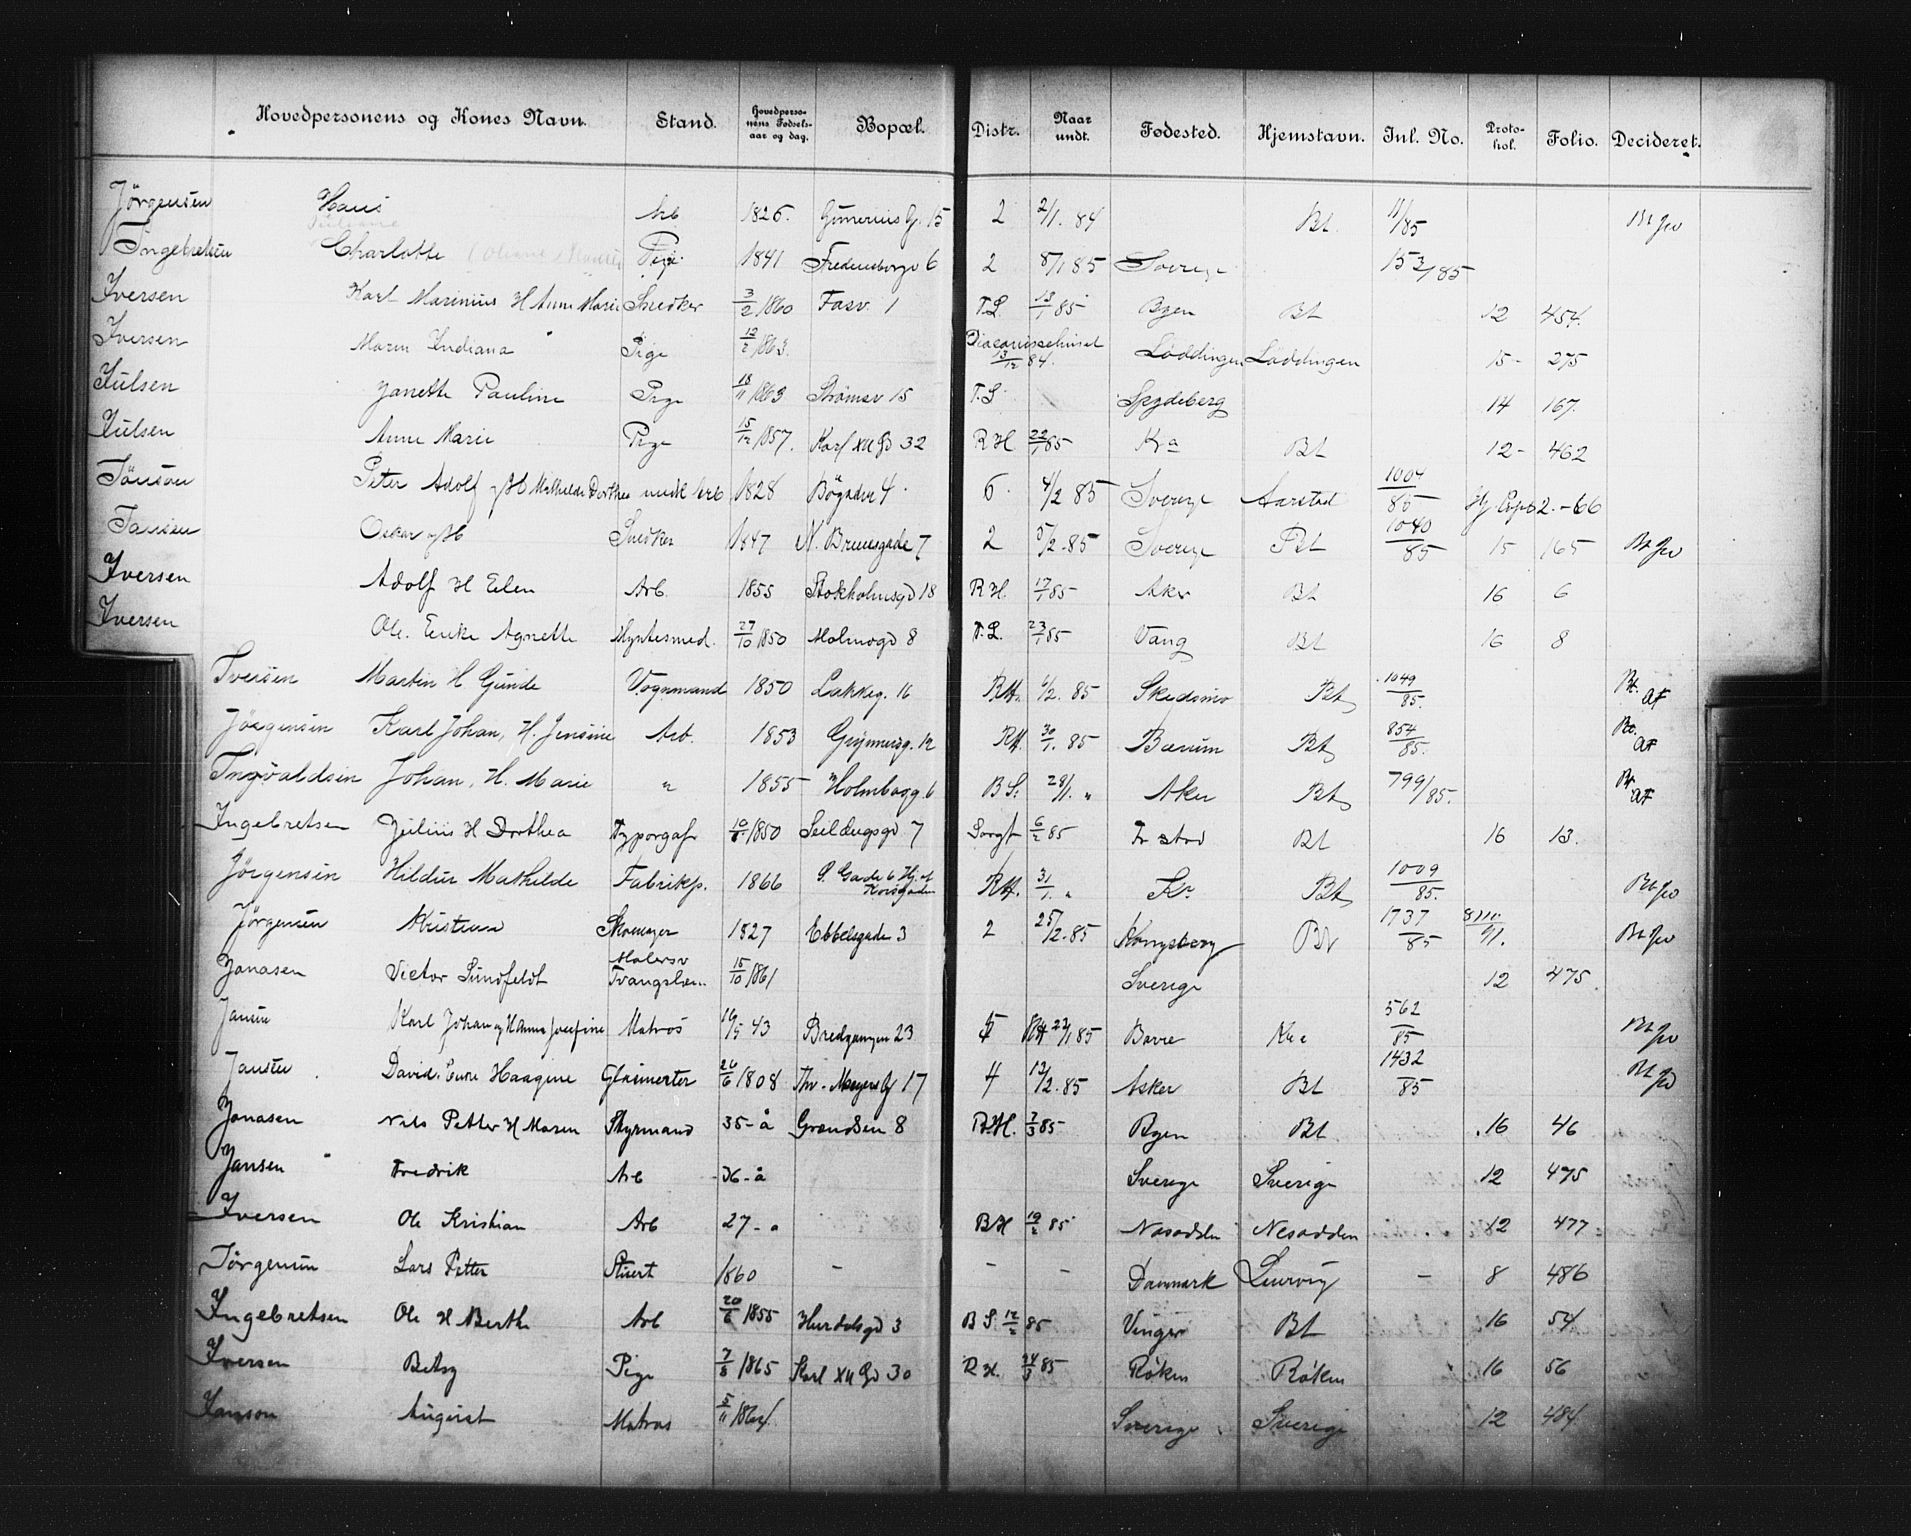 Hovedpersonens og Kones Navn. Stand. Hovedpersonens Fødselsaar og dag. Bopæl. Distr. Naar undt. Fødested. Hjemstavn. Inl. No. Protokol. Folio. Decideret.
Jørgensen Hans Arb 1826. Grunerius G. 15 2 2/1. 84 Bt. 11/85
Ingebretsen Charlotte Pige 1841 Fredensborgv 6 2 8/1 85 Sverige 153/85
Iversen Karl Marinius H Anne Marie Snedker 3/2 1860 Fasv. 1 T.L. 13/1 85 Byen Bt 12 454.
Iversen Maren Indiana Pige 12/2 1863. Diaconissehuset 13/12 84. Løddingen Løddingen 15- 275
Julsen Janette Pauline Pige 18/11 1863 Strømsv 15 T.L Spydeberg 14 167.
Julsen Anne Marie Pige 15/12 1857. Karl XII Gd 32 R H. 22/1 85 Kra Bt 12- 462
Jönson Peter Adolf og H Mathilde Dorthea Arb 1828 Bögaden 4. 6. 4/2 85 Sverige Aarstad 1004/85 2.-66
Jansen Oskar og H Snedker 1847 N. Bruusgade 7 2 5/2. 85 Sverige Bt 1040/85 15 165
Iversen Adolf H Elen Arb. 1855 Stokholmsgd 18 R H. 17/1 85 Aker Bt 16 6
Iversen Ole. Enke Agnette Myntesmed. 27/10 1850 Malmøgd 8 T.L. 23/1 85 Vang Bt 16 8
Iversen Martin H. Gunde Vognmand 1850 Lakkeg. 16 RH. 6/2. 85 Skedsmo Bt 1049/85.
Jörgensen Karl Johan, H. Jensine Arb. 1853 Grünnersg. 12 RH. 30/1. 85 Bærum Bt 854/85.
Ingvaldsen Johan, H. Marie " 1855 Holmbogg. 6 B S. 28/1. " Aker Bt 799/85.
Ingebretsen Julius H Dorthea Typograf 1850 Seildugsgd 7 Sorgf 6/2 85 Fr stad Bt 16 13.
Jörgensen Hildur Mathilde Fabrikp. 1866 P. Gade 6 Hj. af Korsgaden RH. 31/1. " Kr. Bt 1009/85.
Jørgensen Kristian Skomager 1827 Ebbelsgade 3 2 25/2. 85 Kongsberg Bt 1737/85
Jonasen Victor Sundfeldt Malersv Tvangslem. 15/10 1861 Sverige 12 475.
Jansen Karl Johan og H Anna Josefine Matros 43 Bredgangen 23 5 85 Kra 562/85
Jansen David. Enke Haagine Glasmester 26/6 1808 Thv. Meyers G 17 4 12/2. 85 Asker Bt 1432/85
Jonasen Nils Petter H Maren Styrmand 35- å Grændsen 8 R.H. 7/3 85 Byen Bt 16 46
Jansen Fredrik Arb 36- å Sverige Sverige 12 475
Iversen Ole Kristian Arb 27- a B H 19/2 85 Nesodden Nesodden 12 477
Jørgensen Lars Petter Stuert 1860 - - - Danmark Laurvig - 8 486
Ingebretsen Ole H Berthe Arb 20/6 1855 Hurdalsgd 3 B S. 12/2 85 Vinger Bt 16 54
Iversen Betsy Pige 7/8 1865 Karl XII Gd 30 R H. 24/3 85 Røken Røken 16 56
Janson August Matros 5/11 1864. Sverige Sverige 12 484